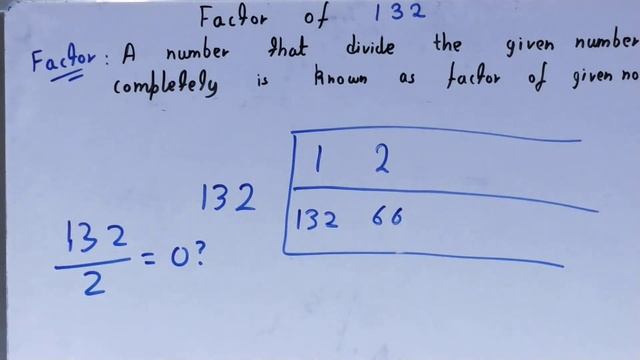 Factor of 132
Factor: A number that divide the given number
completely is known as factor of given no
1 2
132
132 66
132
2 = 0?